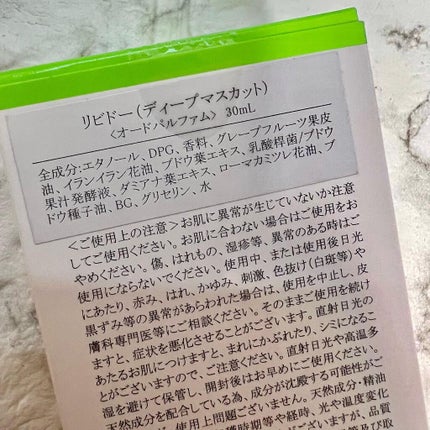 リビドー(ディープマスカット)
〈オードパルファム〉 30mL
全成分:エタノール、DPG、香料、グレープフルーツ果皮
油、イランイラン花油、ブドウ葉エキス、乳酸桿菌/ブドウ
果汁発酵液、ダミアナ葉エキス、ローマカミツレ花油、ブ
ドウ種子油、BG、グリセリン、水
<ご使用上の注意>お肌に異常が生じていないか注意
してご使用ください。お肌に合わない場合はご使用をお
やめください。傷、はれもの、湿疹等、異常のある時はご
使用にならないでください。使用中、または使用後日光
にあたり、赤み、はれ、かゆみ、刺激、色抜け(白斑等)や
黒ずみ等の異常があらわれた場合は、使用を中止し、皮
膚科専門医等にご相談ください。そのままご使用を続け
ますと、症状を悪化させることがございます。直射日光の
あたるお肌につけますと、まれにかぶれたり、シミになるこ
とがございますので、ご注意ください。直射日光や高温多
湿を避けて保管し、開封後はお早めにご使用ください。
天然成分を配合している為、成分が沈殿する可能性がご
ざいますが、使用上問題ございません。天然成分・精油
時期等や経時、光や温度変化
がございますが、品質